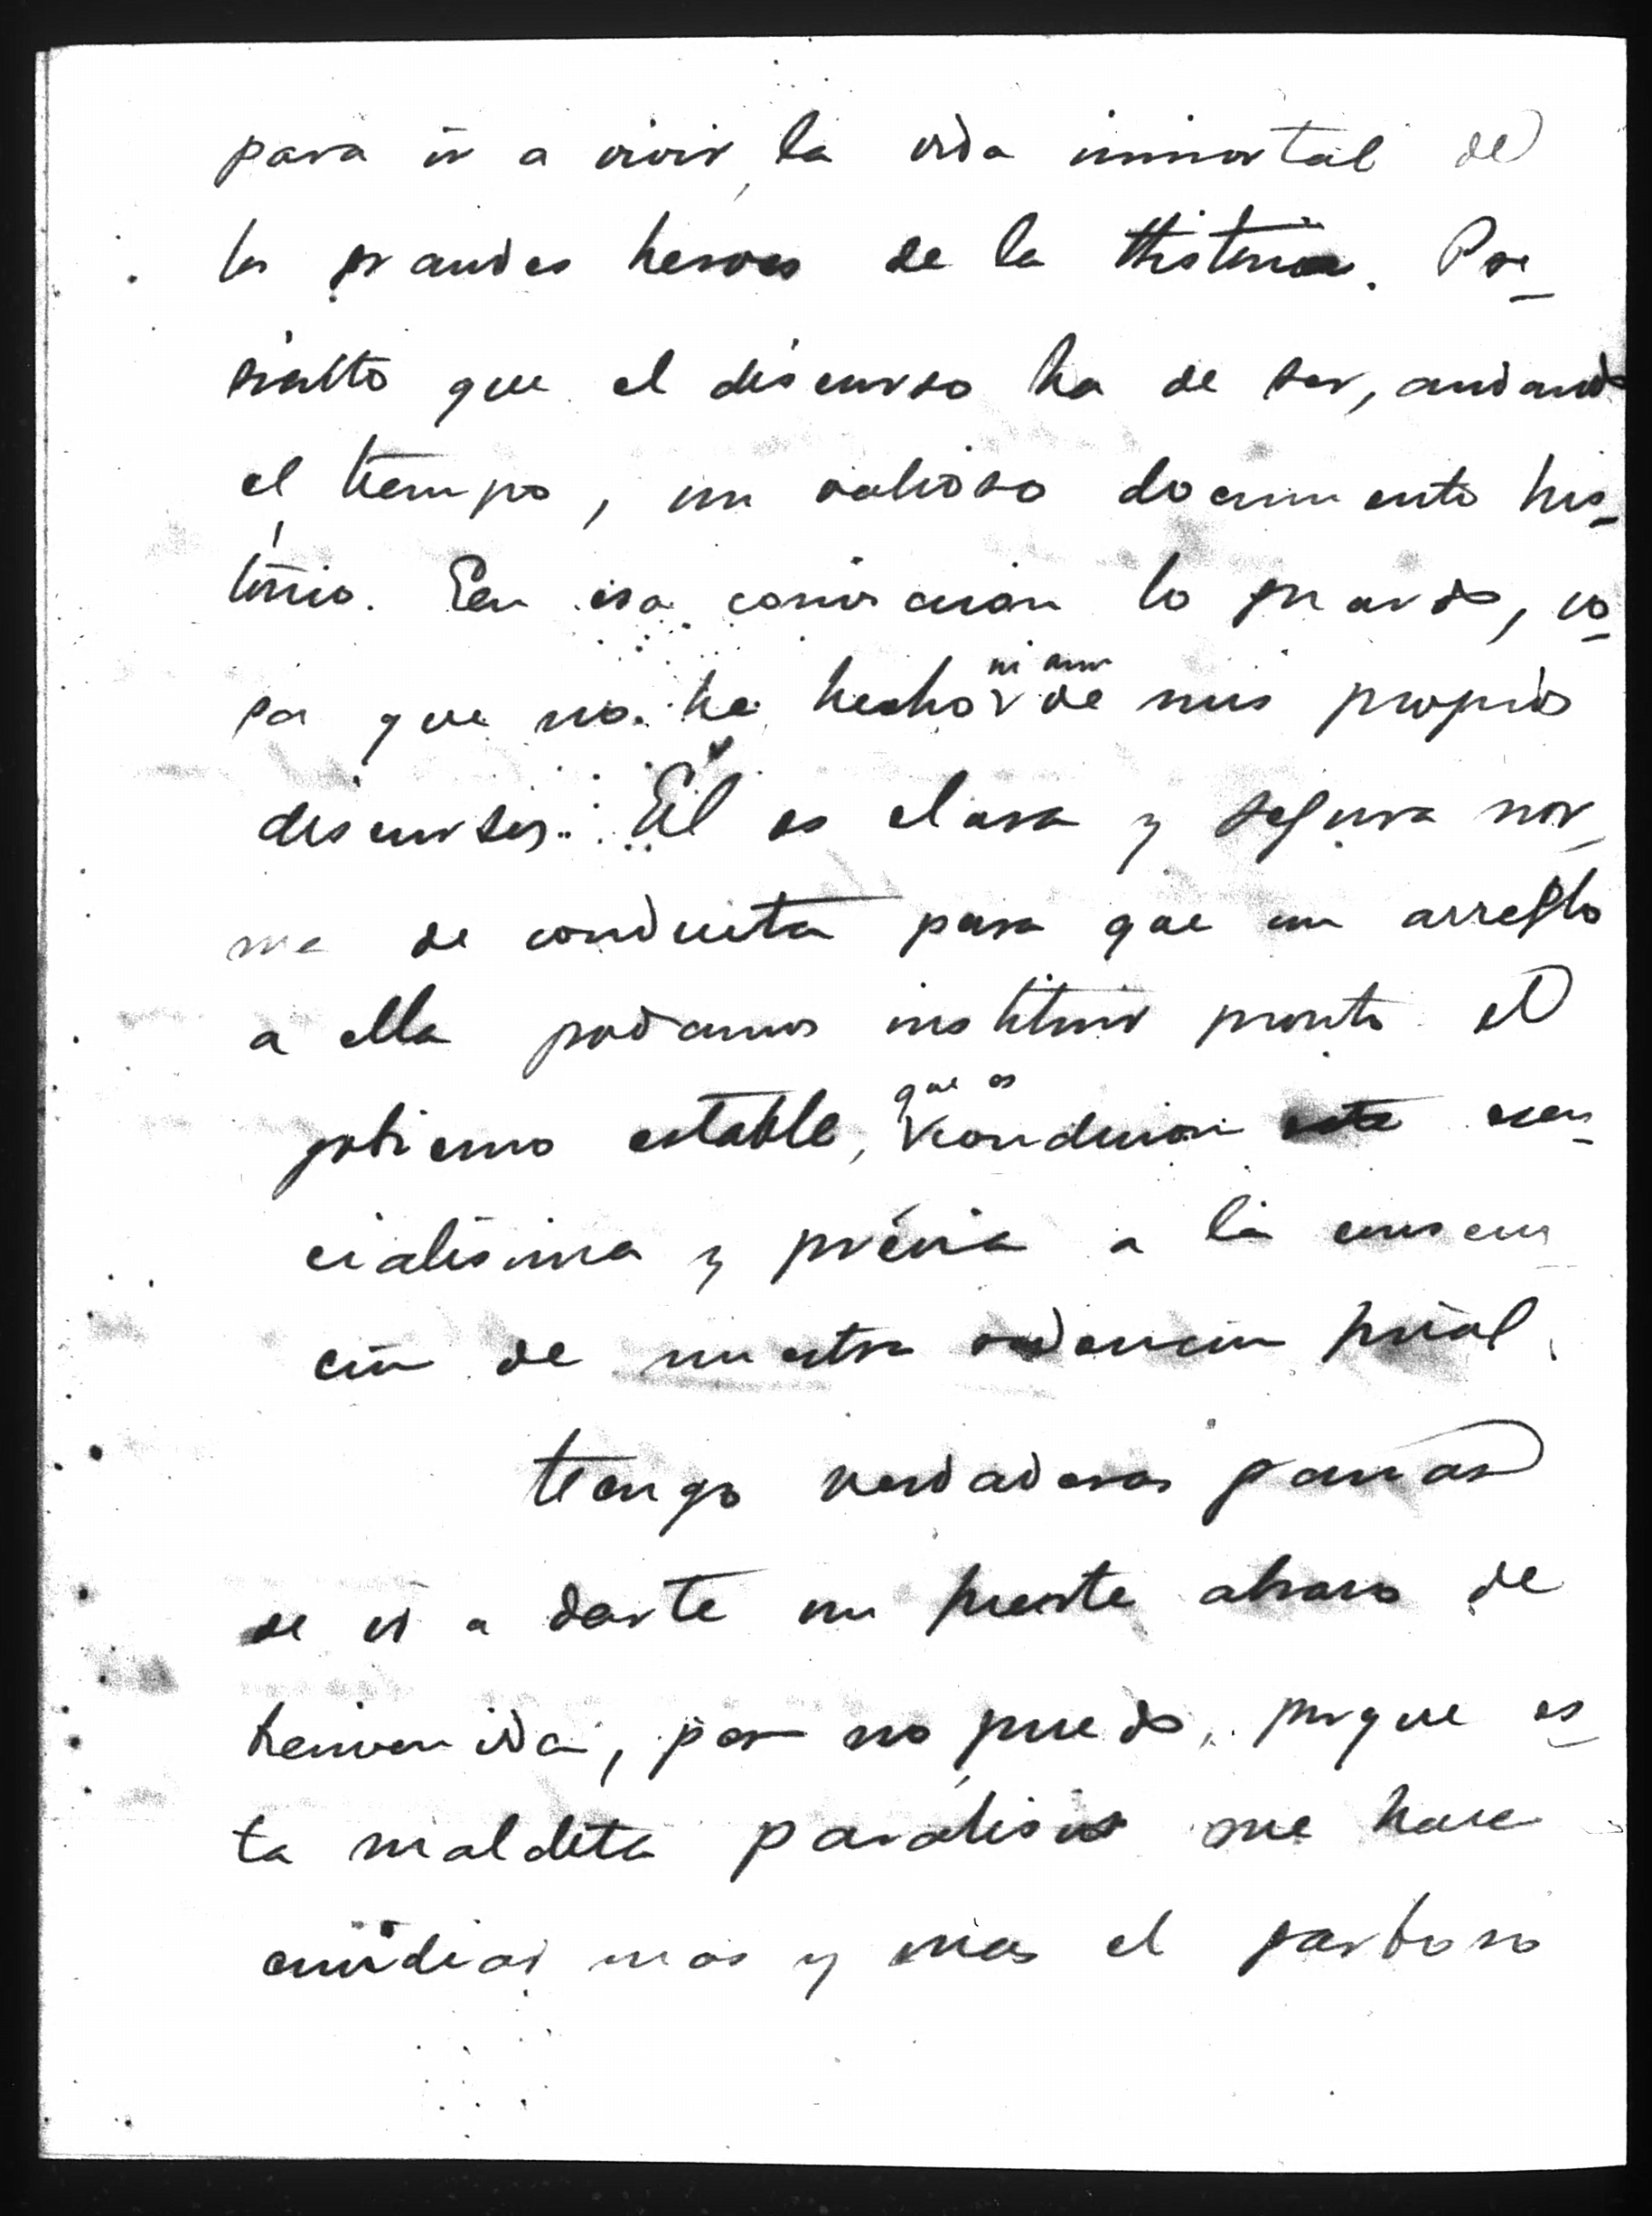 para ir a vivir, la vida inmortal de
los grandes heroes de la Historia. Pre-
sinto que el discurso ha de ser, andando
el tiempo, un valioso documento his-
tórico. Con esa conviccion lo guardo, co-
sa que no he hecho ni aun de mis propios
discursos. Él es clara y segura nor-
ma de conducta para que con arreglo
a ella podamos instituir pronto el
gobierno estable, que es condicion esen-
cialísima y prévia a la consecu-
ción de nuestra redencion final.
Tengo verdaderas ganas
de ir a darte un fuerte abrazo de
bienvenida, pero no puedo, porque es-
ta maldita parálisis me hace
envidiar mas y mas el garboso